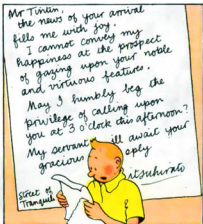 Mr Tintin,
the news of your arrival
fills me with joy.
I cannot convey my
happiness at the prospect
of gazing upon your noble
and virtuous features.
May I humbly beg the
privilege of calling upon
you at 3 o'clock this afternoon?
My servant will await your
gracious reply
itsuhirato
Street of
Tranquili